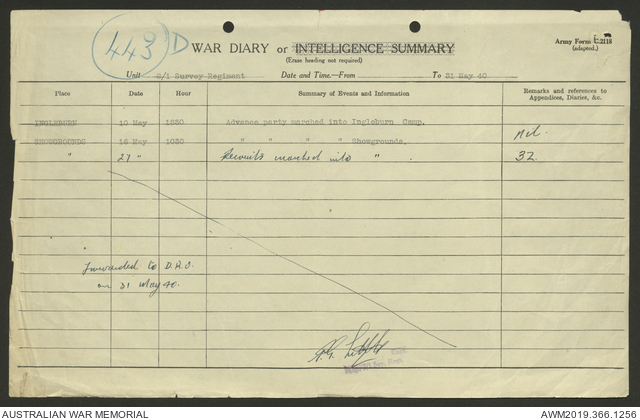 443 D
WAR DIARY or INTELLIGENCE SUMMARY
(Erase heading not required)
Army Form C.2118
(adapted.)
Unit 2/1 Survey Regiment Date and Time.—From To 31 May 40
Place Date Hour Summary of Events and Information Remarks and references to Appendices, Diaries, &c.
INGLEBURN 10 May 1530 Advance party marched into Ingleburn Camp.
Nil.
SHOWGROUNDS 16 May 1030 " " " " Showgrounds.
" 27 " Recruits marched into " . 32.
"
Forwarded to D.A.G.
on 31 May 40.
Capt.
AUSTRALIAN WAR MEMORIAL
AWM2019.366.1256